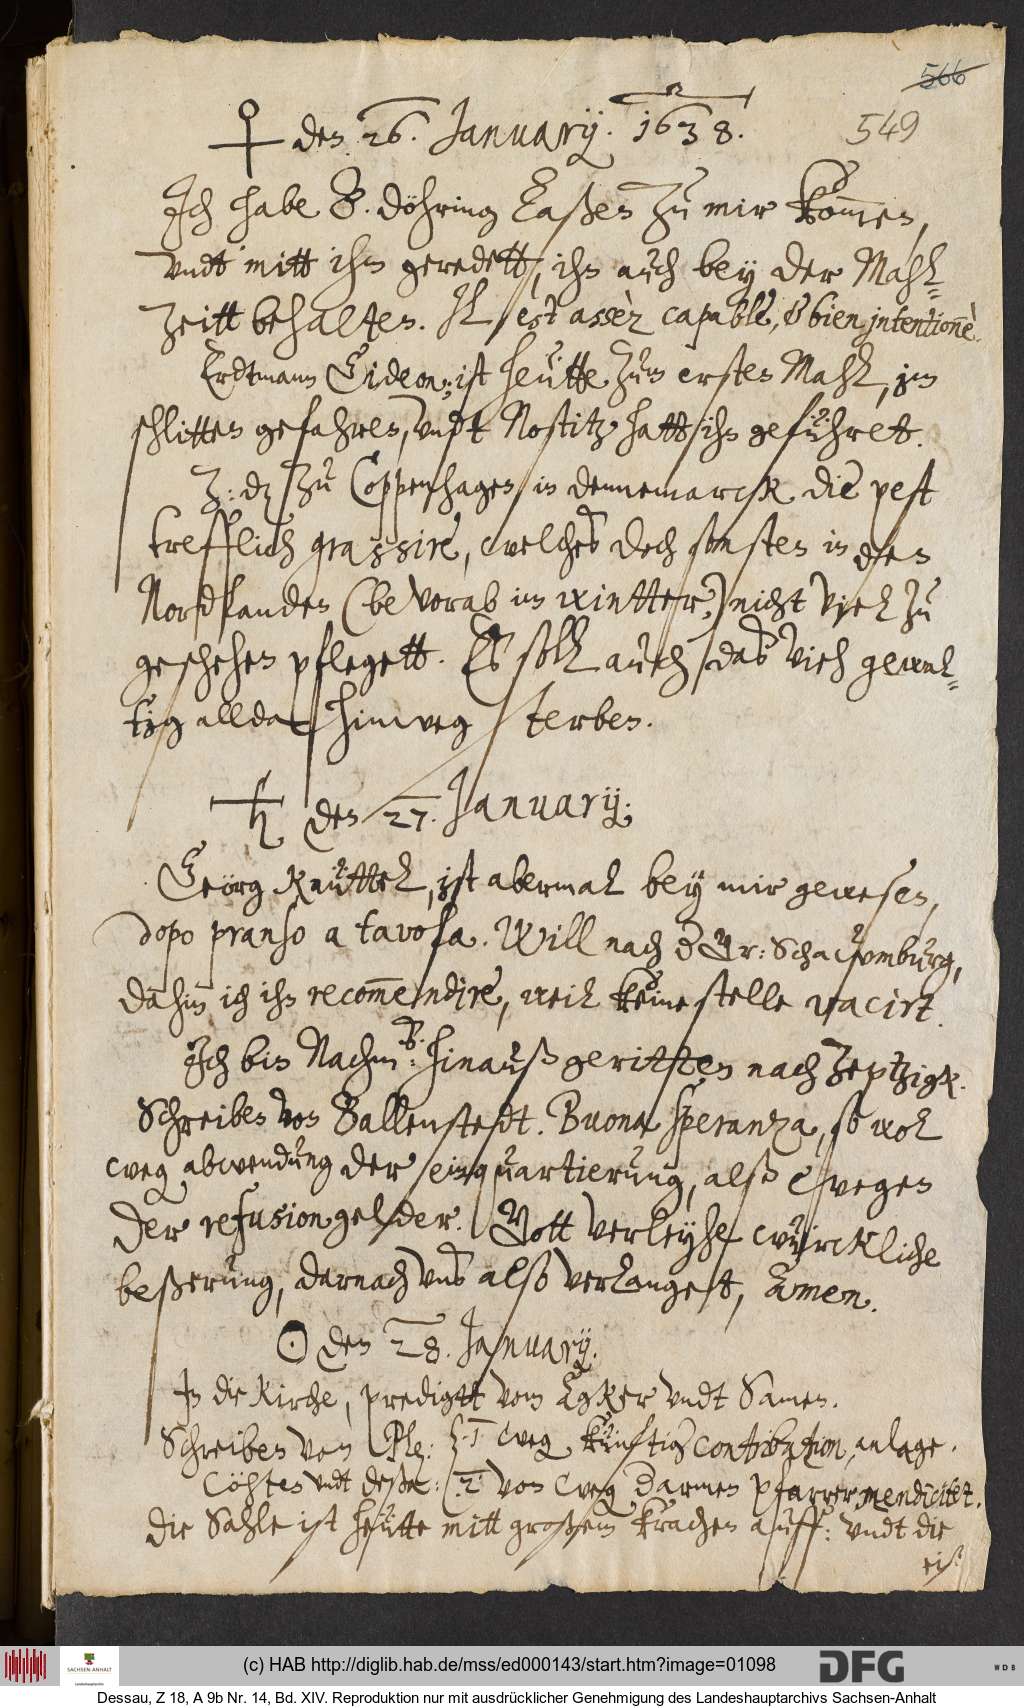 566
549
♀ den 26. January. 1638.
Ich habe B. Döhring laßen zu mir kommen,
vndt mitt ihm geredett, ihn auch bey der Mahl=
zeitt behalten. Il est assèz capable, & bien jntentionnè.
Erdtmann Gideon, ist heütte zum ersten Mahl, jm
schlitten gefahren, vndt Nostitz hatt ihn geführet.
Z: dz zu Coppenhagen in dennemarck die pest
trefflich grassire, welches doch sonsten in den
Nordlanden (bevorab im wintter,) nicht viel zu
geschehen pflegett. Es soll auch das vieh gewal=
tig allda hinweg sterben.
♄ den 27. January:
Georg Knüttel, ist abermal bey mir gewesen,
dopo pranso a tavola. Will nach Schaumburg,
dahin ich ihn recommendire, weil keine stelle vacirt.
Ich bin Nachm: hinauß geritten nach Zeptzigk.
Schreiben von Ballenstedt. Buona speranza, so wol
weg abwendung der einquartierung, alß wegen
der refusion gelder. Gott verleyhe würckliche
beßerung, darnach vns also verlangett, Amen.
☉ den 28. January.
In die Kirche, predigtt vom Agker vndt Samen.
Schreiben von Ple: weg künftig contribution, anlage.
Cöhten vndt deßa: 2 von weg darmen pfarrer mendicitet.
Die Sahle ist heütte mitt großem krachen auff: vndt die
eiß
(c) HAB http://diglib.hab.de/mss/ed000143/start.htm?image=01098
SACHSEN-ANHALT
DFG
WDB
Dessau, Z 18, A 9b Nr. 14, Bd. XIV. Reproduktion nur mit ausdrücklicher Genehmigung des Landeshauptarchivs Sachsen-Anhalt